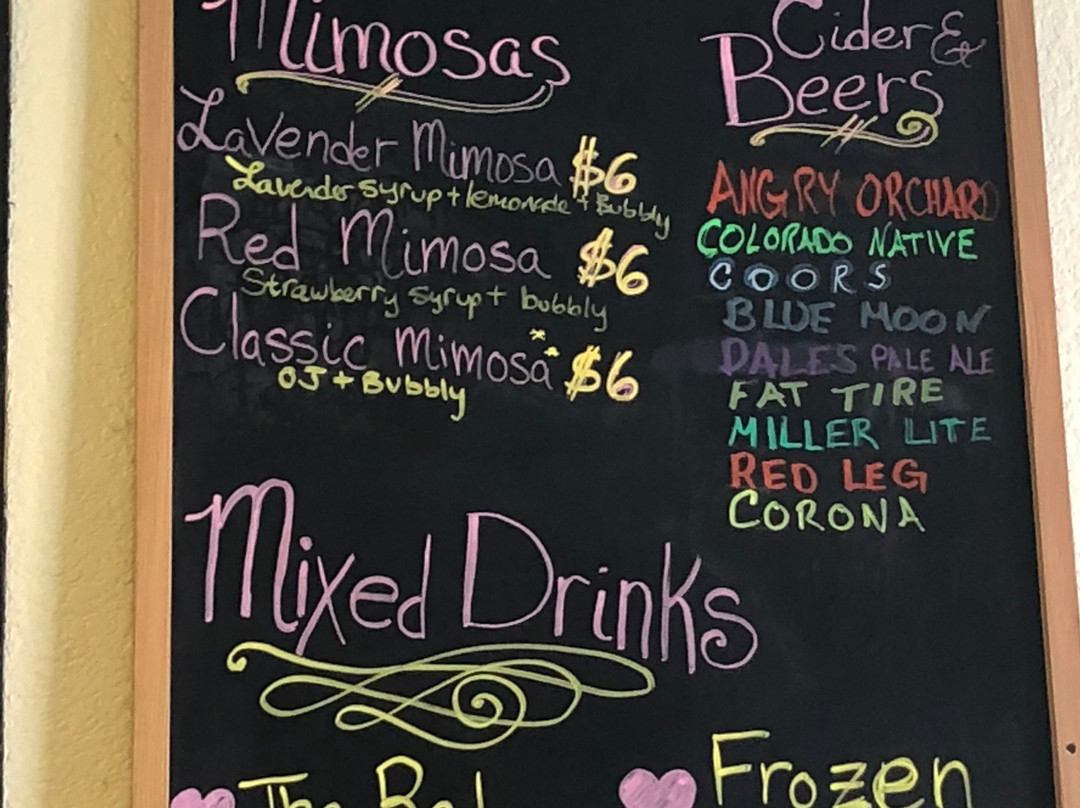 Mimosas
Lavender Mimosa $6
Lavender syrup + lemonade + Bubbly
Red Mimosa $6
Strawberry syrup + bubbly
Classic Mimosa $6
OJ + Bubbly
Cider &
Beers
ANGRY ORCHARD
COLORADO NATIVE
COORS
BLUE MOON
DALES PALE ALE
FAT TIRE
MILLER LITE
RED LEG
CORONA
Mixed Drinks
The
Frozen